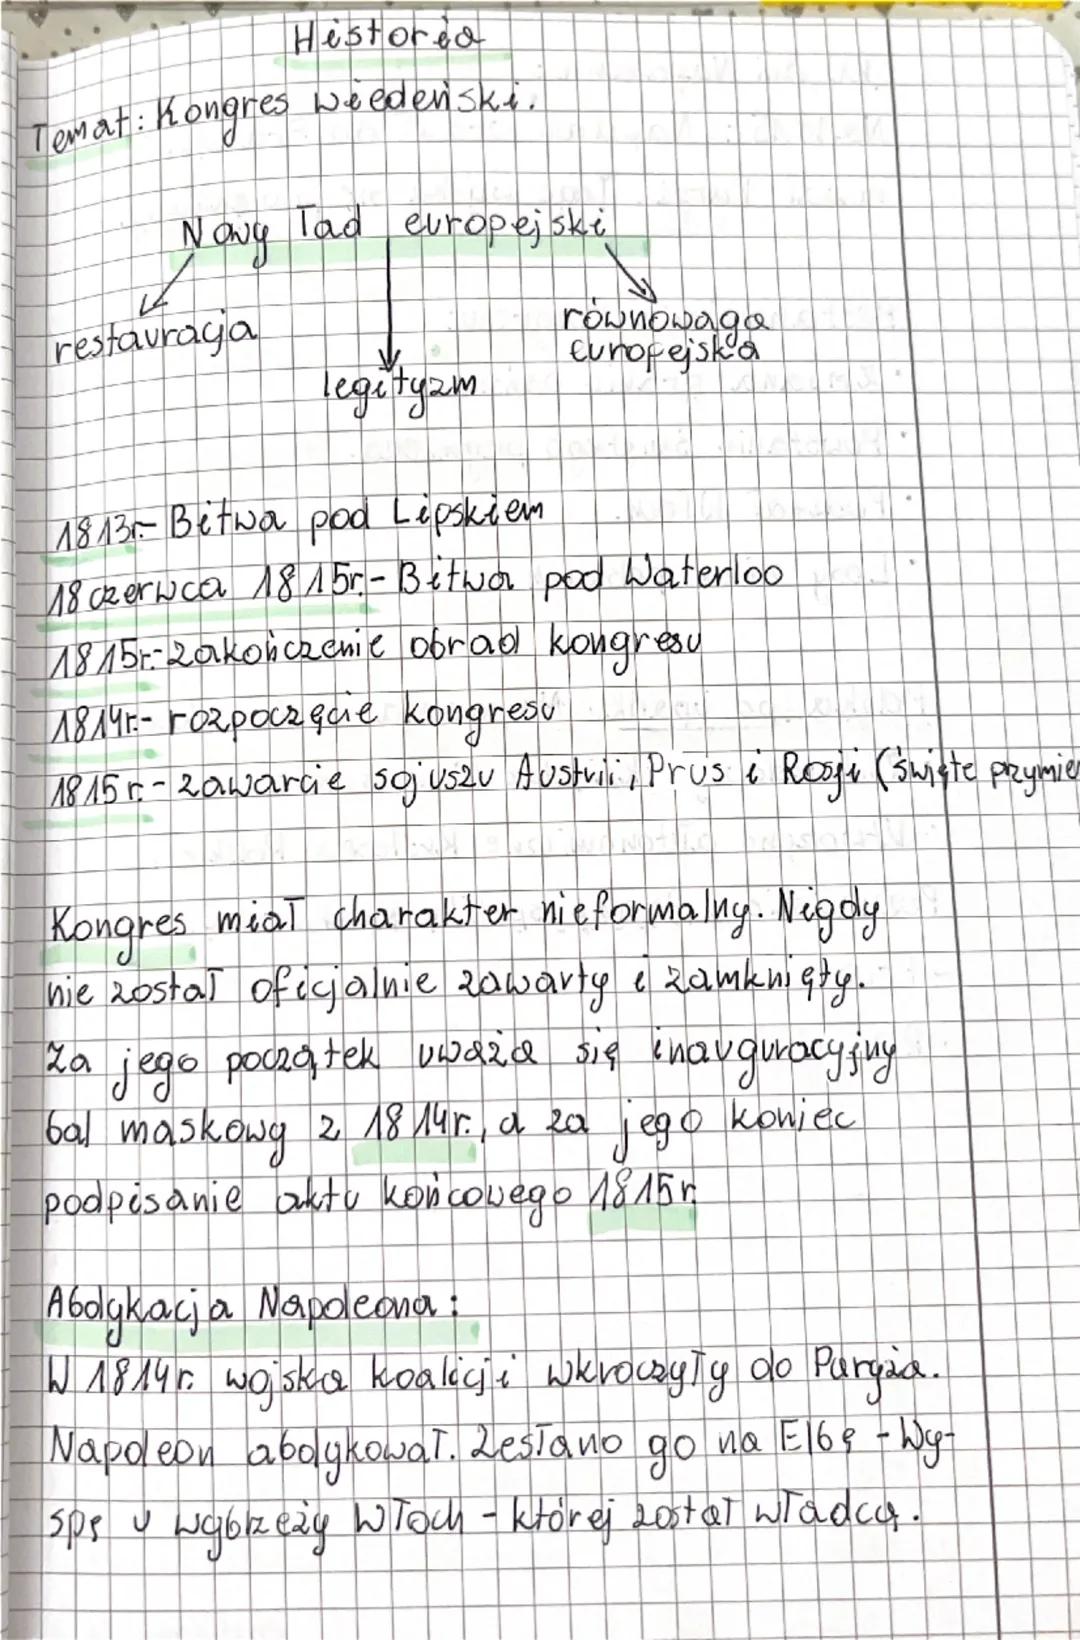 Historia
Temat: Kongres wiedeński.
Nowy ład europejski
restauracja
legityzm
równowaga
europejska
1813r.- Bitwa pod Lipskiem
18 czerwca 1815r.- Bitwa pod Waterloo
1815r.- zakończenie obrad kongresu
1814r.- rozpoczęcie kongresu
1815r.- zawarcie sojuszu Austrii, Prus i Rosji (święte przymie
Kongres miał charakter nieformalny. Nigdy
nie został oficjalnie zawarty i zamknięty.
Za jego początek uważa się inauguracyjny
bal maskowy z 1814r., a za jego koniec
podpisanie aktu końcowego 1815r
Abdykacja Napoleona:
W 1814r. wojska koalicji wkroczyły do Paryża.
Napoleon abdykował. Zesłano go na Elbę - Wy-
spę u wybrzeży Włoch - której został władcą.